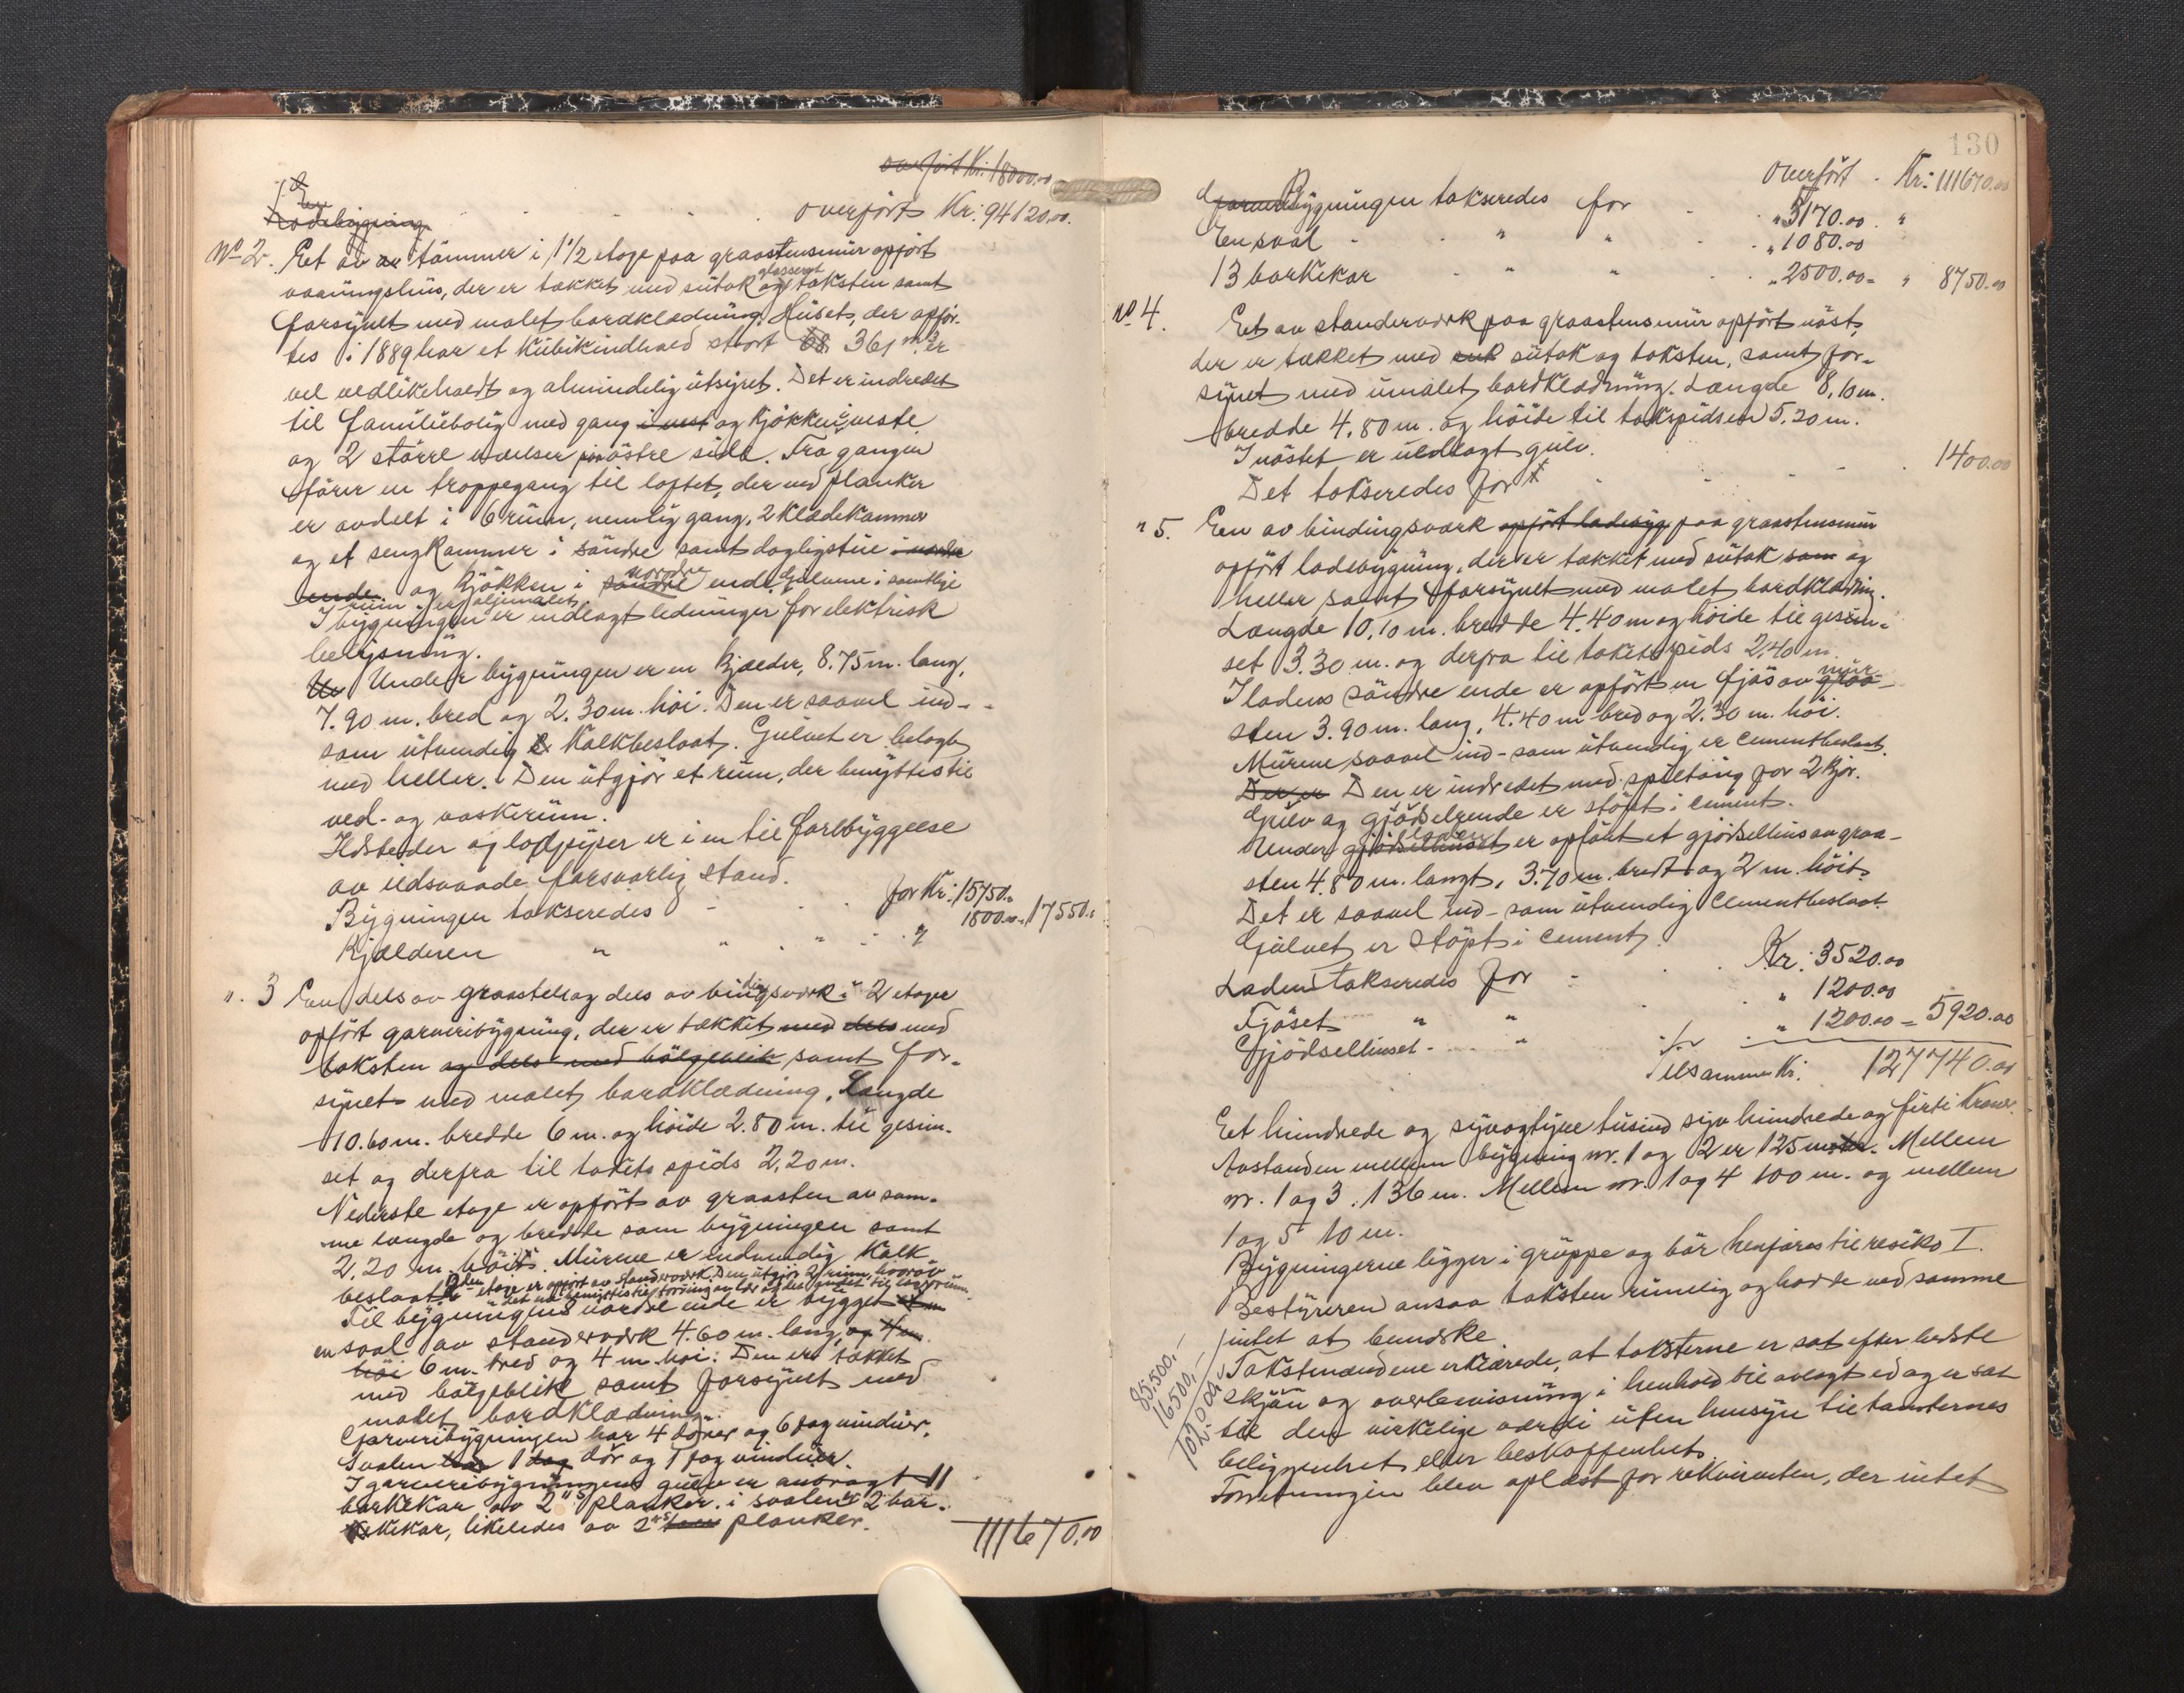 overført Kr: 18000.00
overført Kr: 94120.00.
1 En
ladebygning
No 2. Eet av av tømmer i 1 1/2 etage paa graastensmur opført
vaaningshus, der er tækket med sutak og glasseret taksten samt
forsynet med malet bordklædning. Huset, der opfør-
tes i 1889 har et kubikindhold stort 361 m³ er
vel vedlikeholdt og almindelig utstyret. Det er indredet
til familiebolig med gang i vest og kjøkken i vestre
og 2 større værelser i østre side. Fra gangen
fører en trappegang til loftet, der ved planker
er avdelt i 6 rum, nemlig gang, 2 klædekammer
og et sengkammer i søndre samt dagligstue i nordre
ende og kjøkken i søndre nordre ende. Gulvene i samtlige
rum er oljemalet.
I bygningen er indlagt ledninger for elektrisk
belysning.
Un Under bygningen er en kjælder, 8.75 m. lang,
7.90 m. bred og 2.30 m. høi. Den er saavel ind-
som utvendig kalkbeslaat. Gulvet er belagt
med heller. Den utgjør et rum, der benyttes til
ved- og vaskerum.
Ildsteder og lodpiper er i en til forebyggelse
av ildsvaade forsvarlig stand.
Bygningen takseredes for Kr: 15750.00
Kjælderen " " " " 1800.00 = 17550.00
". 3 Een dels av graasten og dels av bindingsværk i 2 etager
opført garveribygning, der er tækket med dels med
taksten og dels med bølgeblik samt for-
synet med malet bordklædning. Længde
10.60 m. bredde 6 m. og høide 2.80 m. til gesim-
set og derfra til takets spids 2,20 m.
Nederste etage er opført av graasten av sam-
me længde og bredde som bygningen samt
2,20 m. høit. Murene er indvendig kalk
beslaat. 2den etage er opført av standerværk. Den utgjør 2 rum, hvorav
det ene benyttes til tørring av lær og det andet til lagerrum.
Til bygningens nordre ende er bygget
en sval av standerværk 4.60 m. lang, og 4 m.
høi 6 m. bred og 4 m. høi. Den er tækket
med bølgeblik samt forsynet med
malet bordklædning.
Garveribygningen har 4 dører og 6 fag vinduer.
Svalen har 1 dør og 1 fag vinduer.
I garveribygningens gulv er anbragt 11
barkekar av 2" planker. i svalen 2 bar-
kekar, likeledes av 2" planker.
111670,00
130
overført Kr: 111670.00
Garveri Bygningen takseredes for " 5170.00 "
En sval " " " 1080.00
13 barkekar " " " 2500.00 = " 8750.00
No 4. Eet av standerværk paa graastensmur opført nøst,
der er tækket med sutak og taksten, samt for-
synet med umalet bordklædning. Længde 8,10 m.
bredde 4,80 m. og høide til takspidsen 5,20 m.
I nøstet er uldlagt gulv.
Det takseredes for 1400.00
" 5. Een av bindingsværk opført ladebyg paa graastensmur
opført ladebygning, der er tækket med sutak som og
heller samt forsynet med malet bordklædning.
Længde 10,10 m. bredde 4.40 m og høide til gesim-
set 3.30 m. og derfra til taketspids 2,40 m.
I ladens søndre ende er opført en fjøs av graa- mur
sten 3.90 m. lang, 4.40 m bred og 2.30 m. høi.
Murene saavel ind- som utvendig er cementbeslaat.
Der er Den er indredet med spiltaug for 2 kjør.
Gulv og gjødselrende er støpt i cement.
Under gjødselhuset laden er opført et gjødselhus av graa-
sten 4.80 m. langt, 3.70 m. bredt og 2 m. høit.
Det er saavel ind- som utvendig cementbeslaat.
Gulvet er støpt i cement.
Laden takseredes for Kr: 3520.00
Fjøset " " " 1200.00
Gjødselhuset " " 1200.00 = 5920.00
Tilsammen Kr. 127740.00
Eet hundrede og syvogtyve tusind syv hundrede og firti Kroner.
Avstanden mellem bygning nr. 1 og 2 er 125 m. Mellem
nr. 1 og 3. 136 m. Mellem nr. 1 og 4 100 m. og mellem
1 og 5 10 m.
Bygningerne ligger i gruppe og bør henføres til resiko I.
Bestyreren ansaa taksten rimelig og hadde ved samme
intet at bemerke.
Takstmændene erklærede, at taksterne er sat efter bedste
skjøn og overbevisning i henhold til avlagt ed og er sat
til den virkelige værdi uten hensyn til tomternes
beliggenhet eller beskaffenhet.
Forretningen blev oplæst for rekvirenten, der intet
85.500,-
16500,-
102000